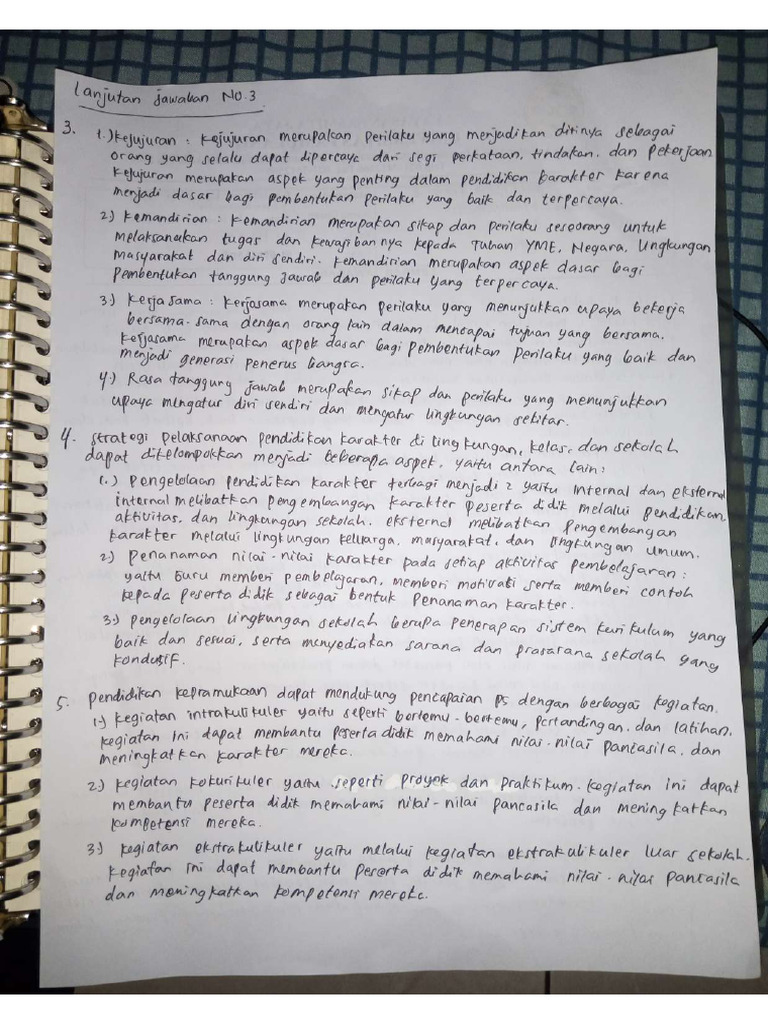 Lanjutan jawaban No.3
3. 1.) Kejujuran : Kejujuran merupakan perilaku yang menjadikan dirinya sebagai
orang yang selalu dapat dipercaya dari segi perkataan, tindakan, dan pekerjaan
Kejujuran merupakan aspek yang penting dalam pendidikan karakter karena
menjadi dasar bagi pembentukan perilaku yang baik dan terpercaya.
2.) Kemandirian : Kemandirian merupakan sikap dan perilaku seseorang untuk
melaksanakan tugas dan kewajibannya kepada Tuhan YME, Negara, Lingkungan
Masyarakat dan diri sendiri. Kemandirian merupakan aspek dasar bagi
pembentukan tanggung jawab dan perilaku yang terpercaya.
3.) Kerja sama : Kerjasama merupakan perilaku yang menunjukkan upaya bekerja
bersama-sama dengan orang lain dalam mencapai tujuan yang bersama.
Kerjasama merupakan aspek dasar bagi pembentukan perilaku yang baik dan
menjadi generasi penerus bangsa.
4.) Rasa tanggung jawab merupakan sikap dan perilaku yang menunjukkan
upaya mengatur diri sendiri dan mengatur lingkungan sekitar.
4. Strategi pelaksanaan pendidikan karakter di lingkungan, kelas, dan sekolah
dapat dikelompokkan menjadi beberapa aspek, yaitu antara lain :
1.) Pengelolaan pendidikan karakter terbagi menjadi 2 yaitu internal dan eksternal
internal melibatkan pengembangan karakter peserta didik melalui pendidikan,
aktivitas, dan lingkungan sekolah. eksternal melibatkan pengembangan
karakter melalui lingkungan keluarga, masyarakat, dan lingkungan umum.
2.) Penanaman nilai-nilai karakter pada setiap aktivitas pembelajaran :
yaitu Guru memberi pembelajaran, memberi motivati serta memberi contoh
kepada peserta didik sebagai bentuk penanaman karakter.
3.) pengelolaan lingkungan sekolah berupa penerapan sistem kurikulum yang
baik dan sesuai, serta menyediakan sarana dan prasarana sekolah yang
kondusif.
5. pendidikan kepramukaan dapat mendukung pencapaian ps dengan berbagai kegiatan.
1.) kegiatan intrakulikuler yaitu seperti bertemu-bertemu, pertandingan, dan latihan.
kegiatan ini dapat membantu peserta didik memahami nilai-nilai pancasila, dan
meningkatkan karakter mereka.
2.) kegiatan kokurikuler yaitu seperti proyek dan praktikum. kegiatan ini dapat
membantu peserta didik memahami nilai-nilai pancasila dan meningkatkan
kompetensi mereka.
3.) kegiatan ekstrakulikuler yaitu melalui kegiatan ekstrakulikuler luar sekolah.
kegiatan ini dapat membantu peserta didik memahami nilai-nilai pancasila
dan meningkatkan kompetensi mereka.